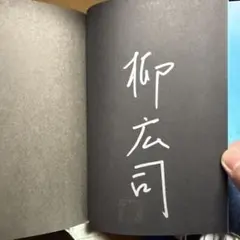 柳広司